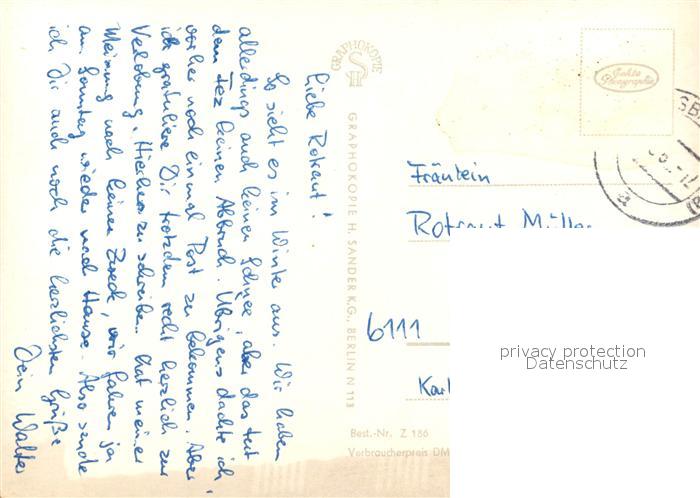 Liebe Rotraut!
So sieht es im Winter aus. Wir haben
allerdings auch keinen Schnee, aber das tut
dem Fez keinen Abbruch. Übrigens dachte ich,
vorher noch einmal Post zu bekommen. Aber
ich gratuliere Dir trotzdem recht herzlich zur
Verlobung. Hierher zu schreiben hat meiner
Meinung nach keinen Zweck, wir fahren ja
am Sonntag wieder nach Hause. Also sende
ich Dir auch noch die herzlichsten Grüße
Dein Walter
GRAPHOKOPIE
SH
GRAPHOKOPIE H. SANDER K.G., BERLIN N 113
Echte
Photographie
Fräulein
Rotraut Müller
6111
privacy protection
Datenschutz
Best.-Nr. Z 186
Verbraucherpreis DM